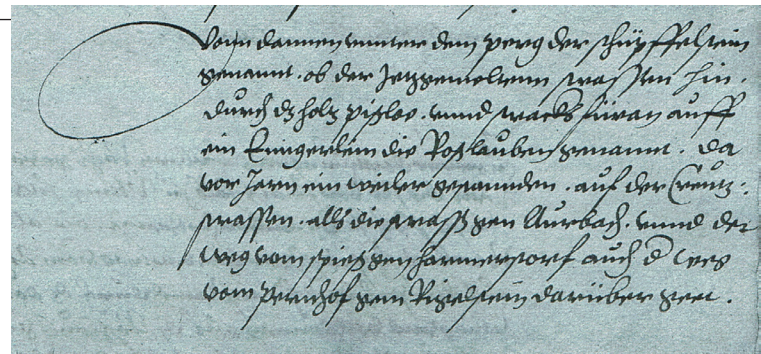 Vonn dannen unnter dem perg der schüpffelstein
genannt . ob der Jetzgemeltenn strassen hin .
durch dz holz pißloe . unnd stracks füran auff
ein Enngerlein die Roßlauben genannt . da
vor Jarn ein weiler gestannden . auf der Creutz-
strassen . alls die straß gen Aurbach . unnd der
weg vom spieß gen hannerstorf auch d weg
vom pernhof gein Rigelstein darüber geet .